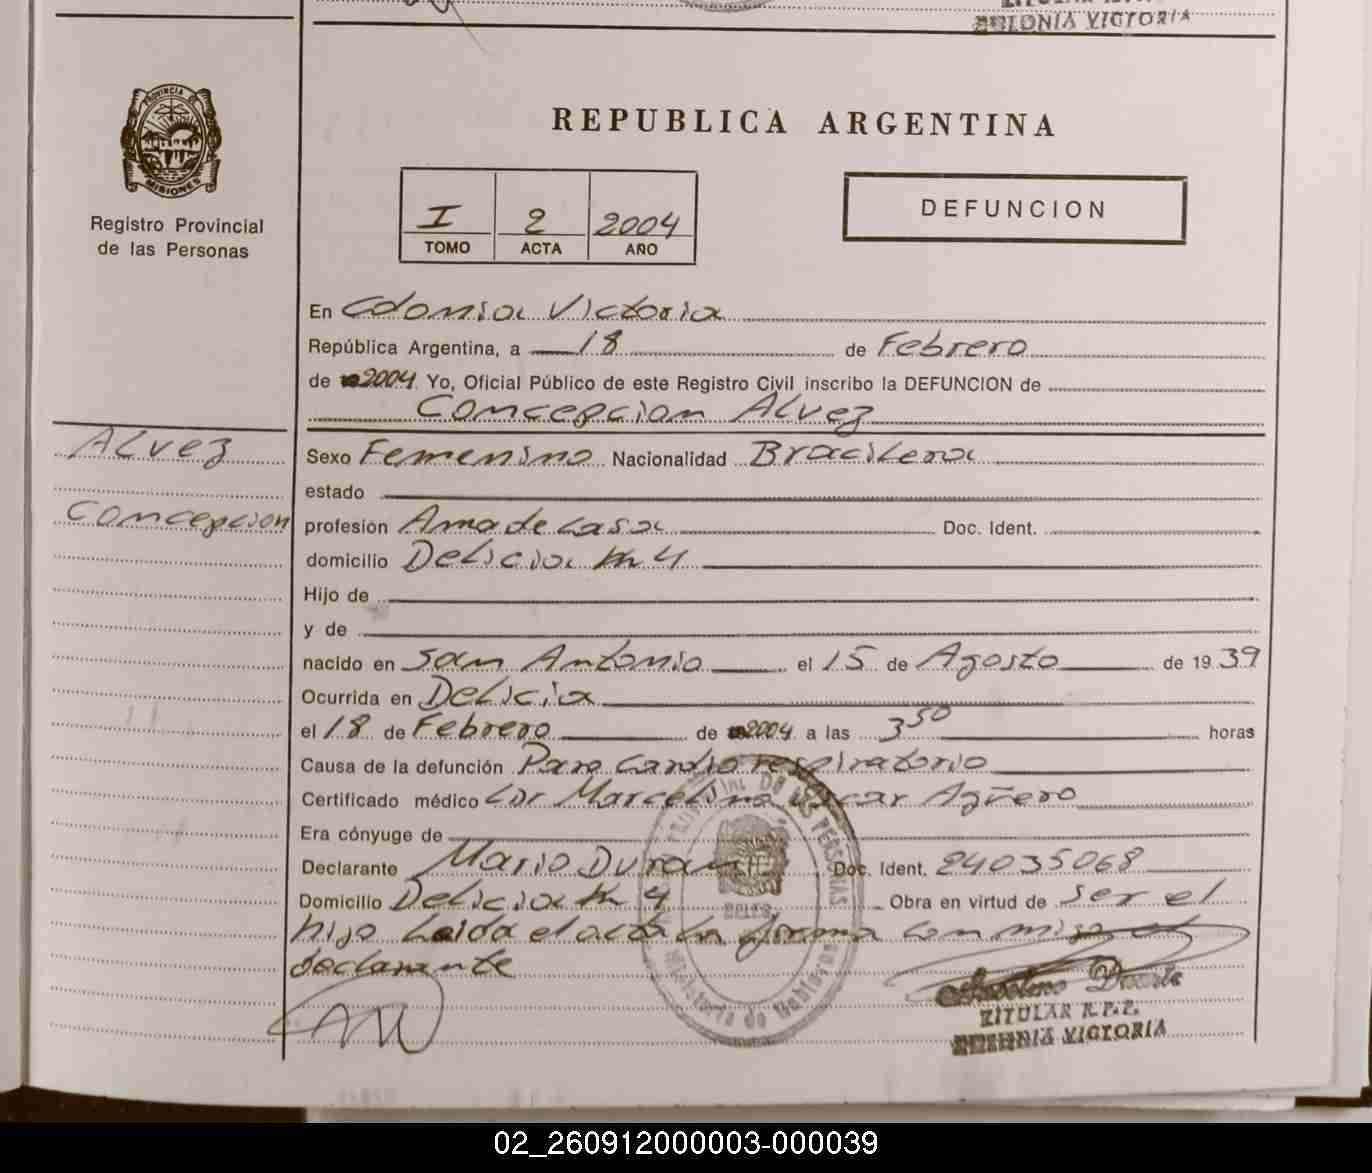 COLONIA VICTORIA
PROVINCIA DE
MISIONES
Registro Provincial
de las Personas
REPUBLICA ARGENTINA
I 2 2004
TOMO ACTA AÑO
DEFUNCION
En Colonia Victoria
República Argentina, a 18 de Febrero
de 2004 Yo, Oficial Público de este Registro Civil inscribo la DEFUNCION de
Concepcion Alvez
Alvez
Concepcion
Sexo Femenino Nacionalidad Bracilera
estado
profesión Ama de casa Doc. Ident.
domicilio Delicia km 4
Hijo de
y de
nacido en San Antonio el 15 de Agosto de 19 39
Ocurrida en Delicia
el 18 de Febrero de 2004 a las 3 50 horas
Causa de la defunción Paro Cardio respiratorio
Certificado médico Dr Marcelino Oscar Agüero
Era cónyuge de
Declarante Mario Duran Doc. Ident. 24035068
Domicilio Delicia km 4 Obra en virtud de ser el
hijo Leida el acta la firma conmigo el
declarante
TITULAR R.P.P.
COLONIA VICTORIA
02_260912000003-000039